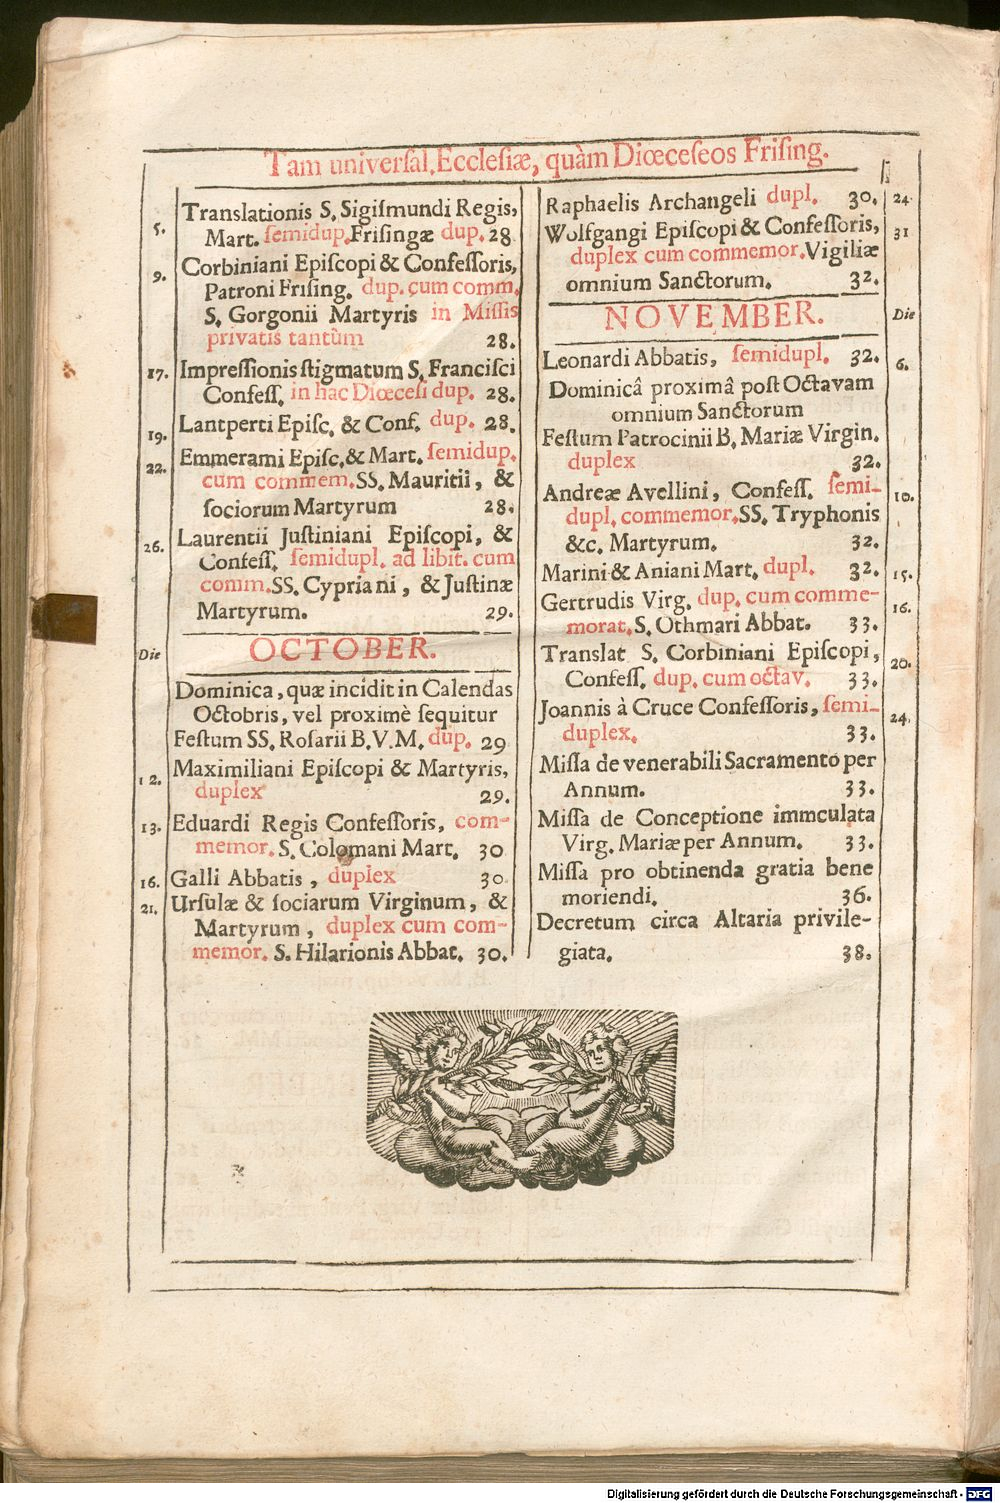 Tam universal. Ecclesiæ, quàm Diœceseos Frising.
5. Translationis S. Sigismundi Regis,
Mart. semidup. Frisingæ dup. 28
9. Corbiniani Episcopi & Confessoris,
Patroni Frising. dup. cum comm.
S. Gorgonii Martyris in Missis
privatis tantùm 28.
17. Impressionis stigmatum S. Francisci
Confess. in hac Diœcesi dup. 28.
19. Lantperti Episc. & Conf. dup. 28.
22. Emmerami Episc. & Mart. semidup.
cum commem. SS. Mauritii, &
sociorum Martyrum 28.
26. Laurentii Justiniani Episcopi, &
Confess. semidupl. ad libit. cum
comm. SS. Cypriani, & Justinæ
Martyrum. 29.
Die OCTOBER.
Dominica, quæ incidit in Calendas
Octobris, vel proximè sequitur
Festum SS. Rosarii B.V.M. dup. 29
12. Maximiliani Episcopi & Martyris,
duplex 29.
13. Eduardi Regis Confessoris, com-
memor. S. Colomani Mart. 30
16. Galli Abbatis, duplex 30
21. Ursulæ & sociarum Virginum, &
Martyrum, duplex cum com-
memor. S. Hilarionis Abbat. 30.
Raphaelis Archangeli dupl. 30. 24
Wolfgangi Episcopi & Confessoris, 31
duplex cum commemor. Vigiliæ
omnium Sanctorum. 32.
NOVEMBER. Die
Leonardi Abbatis, semidupl. 32. 6.
Dominicâ proximâ post Octavam
omnium Sanctorum
Festum Patrocinii B. Mariæ Virgin.
duplex 32.
Andreæ Avellini, Confess. semi- 10.
dupl. commemor. SS. Tryphonis
&c. Martyrum. 32.
Marini & Aniani Mart. dupl. 32. 15.
Gertrudis Virg. dup. cum comme- 16.
morat. S. Othmari Abbat. 33.
Translat S. Corbiniani Episcopi, 20.
Confess. dup. cum octav. 33.
Joannis à Cruce Confessoris, semi- 24.
duplex. 33.
Missa de venerabili Sacramento per
Annum. 33.
Missa de Conceptione immculata
Virg. Mariæ per Annum. 33.
Missa pro obtinenda gratia bene
moriendi. 36.
Decretum circa Altaria privile-
giata. 38.
Digitalisierung gefördert durch die Deutsche Forschungsgemeinschaft - DFG